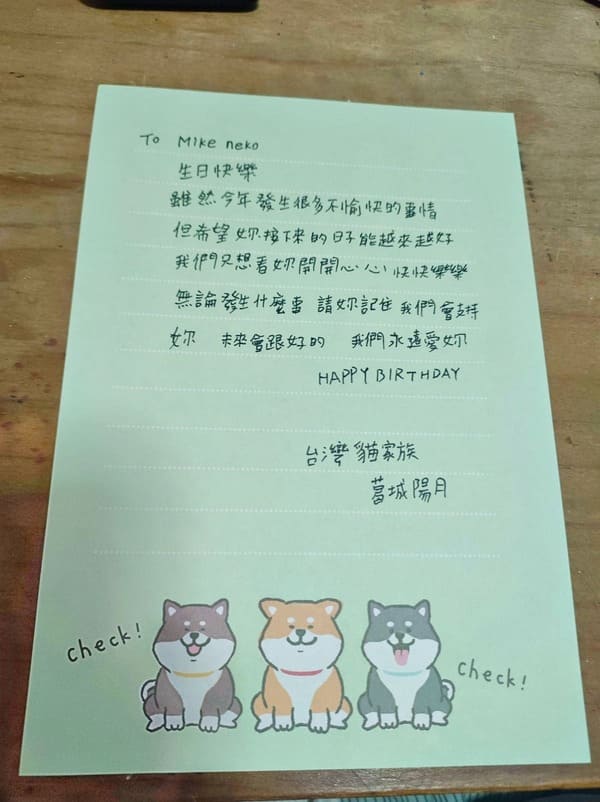 To Mike neko
生日快樂
雖然今年發生很多不愉快的事情
但希望妳接下來的日子能越來越好
我們只想看妳開開心心 快快樂樂
無論發生什麼事 請妳記住 我們會支持
妳 未來會跟好的 我們永遠愛妳
HAPPY BIRTHDAY
台灣貓家族
葛城陽月
check!
check!